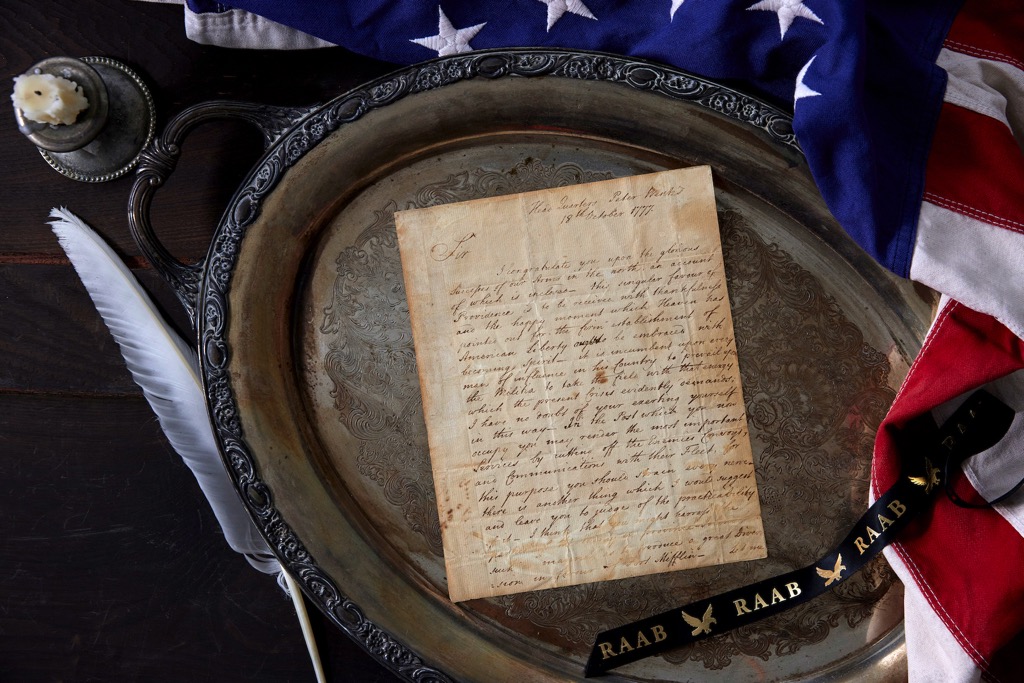 Head Quarters Peter Wentz's
18th October 1777.
Sir
I congratulate you upon the glorious
Success of our Arms in the north, an account
of which is inclos'd. This singular favour of
Providence is to be receiv'd with thankfulness
and the happy moment which Heaven has
pointed out for the firm establishment of
American Liberty ought to be embraced with
becoming Spirit - it is incumbent upon every
man of influence in his Country to prevail upon
the Militia to take the field with that energy
which the present crisis evidently demands,
I have no doubt of your exerting yourself
in this way. In the Post which you now
occupy you may render the most important
Services by cutting off the Enemies Convoys
and Communications with their Fleet, for
this purpose you should strain every nerve
there is another thing which I would suggest
and leave you to judge of the practicability
of it - I think that
such Mifflin
RAAB RAAB RAAB RAAB